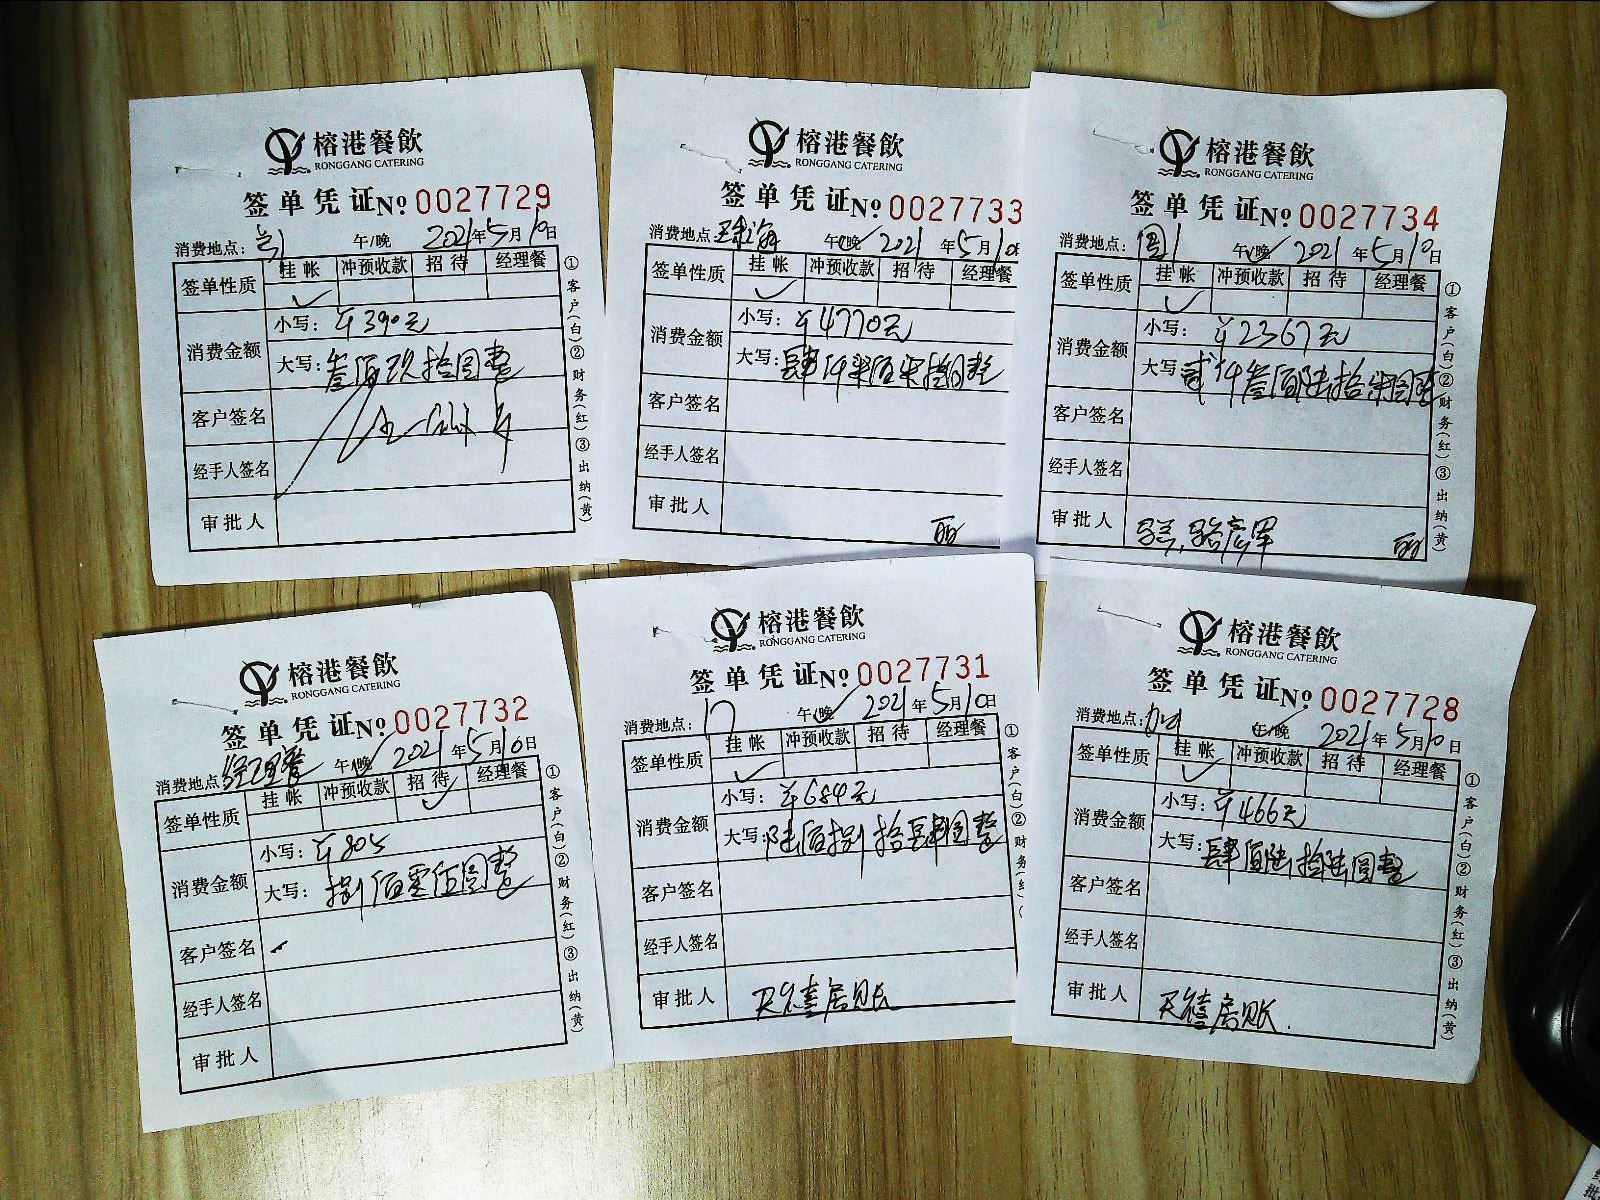 榕港餐飲
RONGGANG CATERING
签单凭证 № 0027729
消费地点: 午/晚 2021年5月10日
签单性质 挂帐 冲预收款 招待 经理餐
✓
消费金额 小写: ¥390元
大写: 叁佰玖拾圆整
客户签名
经手人签名
审批人
①客户(白)②财务(红)③出纳(黄)
榕港餐飲
RONGGANG CATERING
签单凭证 № 0027733
消费地点: 珠海 午/晚 2021年5月10
签单性质 挂帐 冲预收款 招待 经理餐
✓
消费金额 小写: ¥4770元
大写: 肆仟柒佰柒拾圆整
客户签名
经手人签名
审批人
榕港餐飲
RONGGANG CATERING
签单凭证 № 0027734
消费地点: 午/晚 2021年5月10日
签单性质 挂帐 冲预收款 招待 经理餐
✓
消费金额 小写: ¥2367元
大写: 贰仟叁佰陆拾柒圆整
客户签名
经手人签名
审批人
①客户(白)②财务(红)③出纳(黄)
榕港餐飲
RONGGANG CATERING
签单凭证 № 0027732
消费地点: 经理餐 午/晚 2021年5月10日
签单性质 挂帐 冲预收款 招待 经理餐
✓
消费金额 小写: ¥805
大写: 捌佰零伍圆整
客户签名
经手人签名
审批人
①客户(白)②财务(红)③出纳(黄)
榕港餐飲
RONGGANG CATERING
签单凭证 № 0027731
消费地点: 午/晚 2021年5月10日
签单性质 挂帐 冲预收款 招待 经理餐
✓
消费金额 小写: ¥684元
大写: 陆佰捌拾肆圆整
客户签名
经手人签名
审批人 房账
①客户(白)②财务(红
榕港餐飲
RONGGANG CATERING
签单凭证 № 0027728
消费地点: 午/晚 2021年5月10日
签单性质 挂帐 冲预收款 招待 经理餐
✓
消费金额 小写: ¥466元
大写: 肆佰陆拾陆圆整
客户签名
经手人签名
审批人 房账
①客户(白)②财务(红)③出纳(黄)